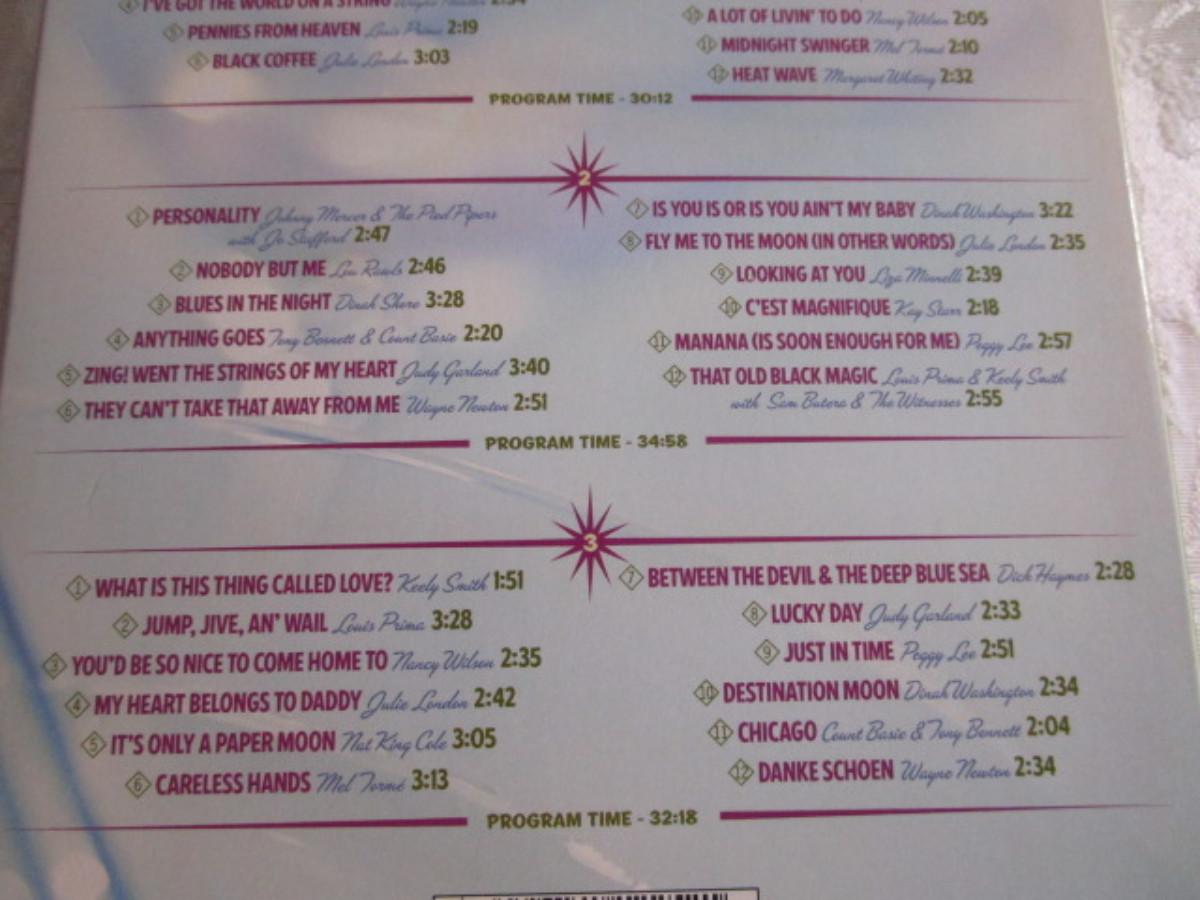 4 I'VE GOT THE WORLD ON A STRING Wayne Newton 2:34
5 PENNIES FROM HEAVEN Louis Prima 2:19
6 BLACK COFFEE Julie London 3:03
10 A LOT OF LIVIN' TO DO Nancy Wilson 2:05
11 MIDNIGHT SWINGER Mel Tormé 2:10
12 HEAT WAVE Margaret Whiting 2:32
PROGRAM TIME - 30:12
2
1 PERSONALITY Johnny Mercer & The Pied Pipers
with Jo Stafford 2:47
2 NOBODY BUT ME Lou Rawls 2:46
3 BLUES IN THE NIGHT Dinah Shore 3:28
4 ANYTHING GOES Tony Bennett & Count Basie 2:20
5 ZING! WENT THE STRINGS OF MY HEART Judy Garland 3:40
6 THEY CAN'T TAKE THAT AWAY FROM ME Wayne Newton 2:51
7 IS YOU IS OR IS YOU AIN'T MY BABY Dinah Washington 3:22
8 FLY ME TO THE MOON (IN OTHER WORDS) Julie London 2:35
9 LOOKING AT YOU Liza Minnelli 2:39
10 C'EST MAGNIFIQUE Kay Starr 2:18
11 MANANA (IS SOON ENOUGH FOR ME) Peggy Lee 2:57
12 THAT OLD BLACK MAGIC Louis Prima & Keely Smith
with Sam Butera & The Witnesses 2:55
PROGRAM TIME - 34:58
3
1 WHAT IS THIS THING CALLED LOVE? Keely Smith 1:51
2 JUMP, JIVE, AN' WAIL Louis Prima 3:28
3 YOU'D BE SO NICE TO COME HOME TO Nancy Wilson 2:35
4 MY HEART BELONGS TO DADDY Julie London 2:42
5 IT'S ONLY A PAPER MOON Nat King Cole 3:05
6 CARELESS HANDS Mel Tormé 3:13
7 BETWEEN THE DEVIL & THE DEEP BLUE SEA Dick Haymes 2:28
8 LUCKY DAY Judy Garland 2:33
9 JUST IN TIME Peggy Lee 2:51
10 DESTINATION MOON Dinah Washington 2:34
11 CHICAGO Count Basie & Tony Bennett 2:04
12 DANKE SCHOEN Wayne Newton 2:34
PROGRAM TIME - 32:18